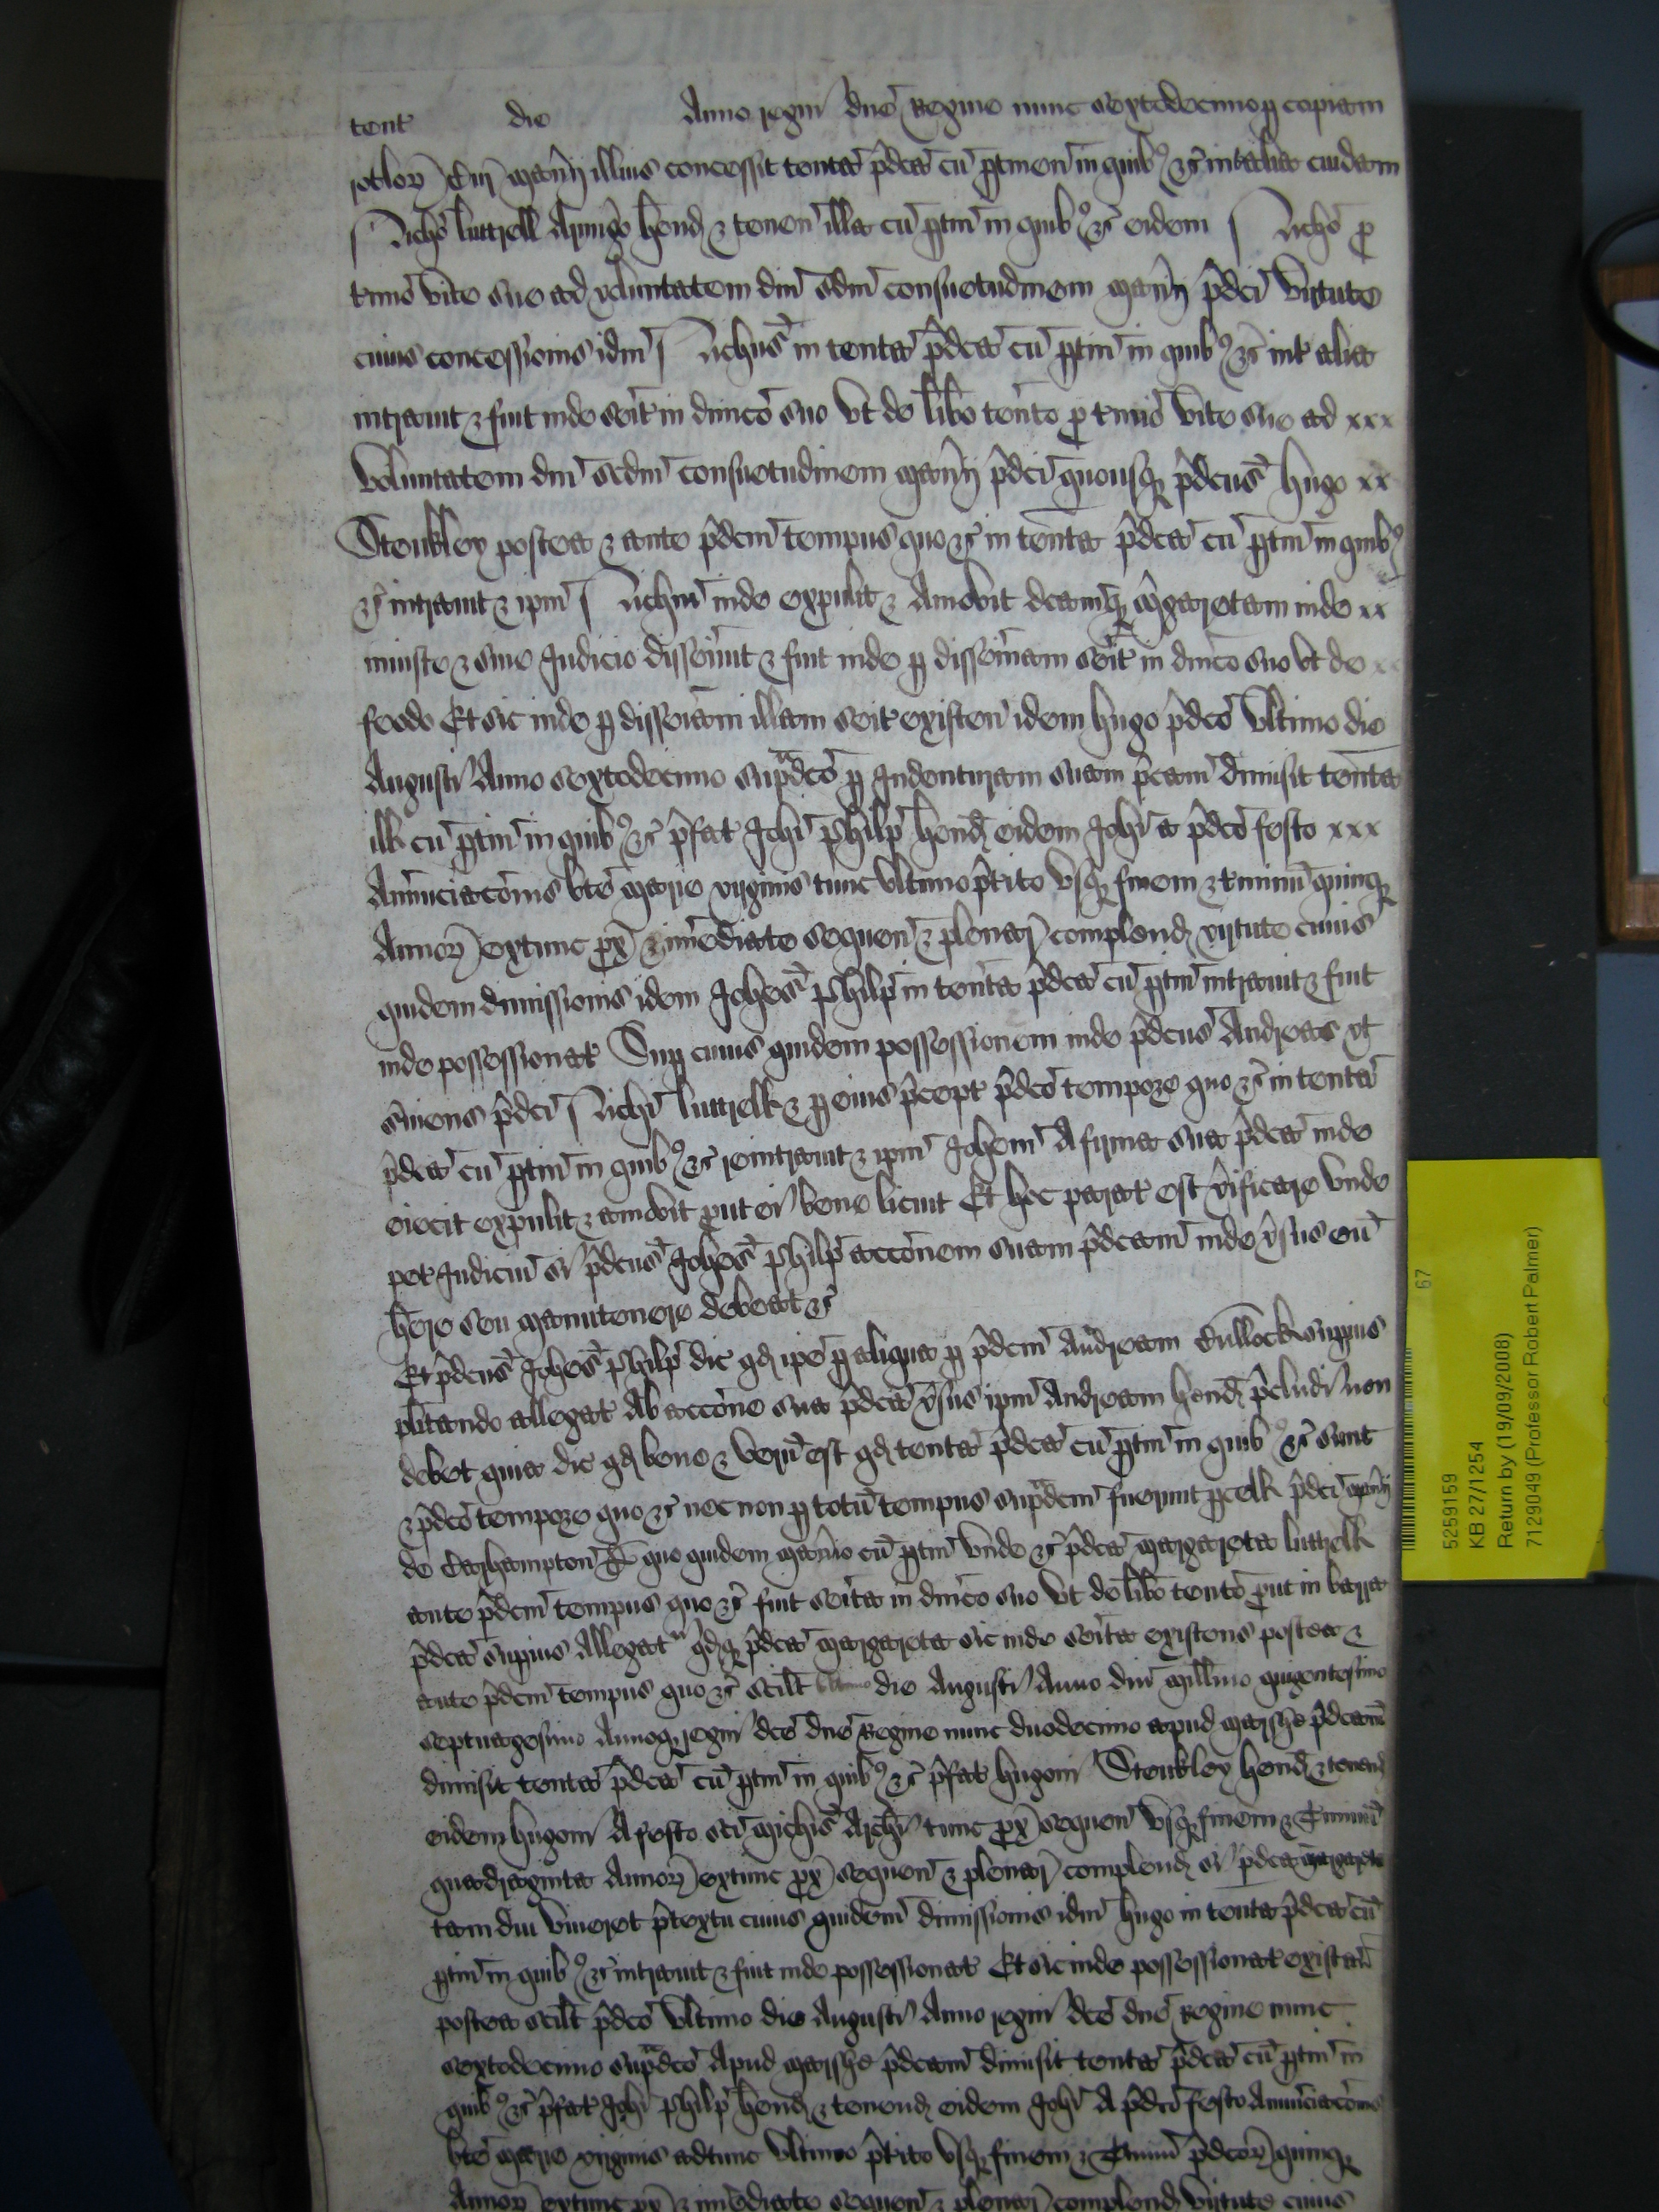 tent die Anno regni dne Regine nunc sextodecimo p copiam
rotlor Cur manij illius concessit tenta pdca cu ptinen in quib zc int alia cuidam
Nicho Luttrell Armigo hend & tenen illa cu ptin in quib zc eidem Nicho p
tmio vite sue ad voluntatem dni scdm consuetudinem manij pdci virtute
cuius concessionis idm Nichus in tenta pdca cu ptin in quib zc int alia
intravit & fuit inde seit in dnico suo vt de libo tento p tmio vite sue ad xxx
voluntatem dni scdm consuetudinem manij pdci quousq pdcus Hugo xx
Steukley postea & ante pdcm tempus quo zc in tenta pdca cu ptin in quib
zc intravit & ipm Nichm inde expulit & Amovit dcamq Mgaretam inde xx
iniuste & sine Judicio disseivit & fuit inde p disseinam seit in dnico suo vt de x
feodo Et sic inde p disseinam illam seit existen idem Hugo pdco vltimo die
Augusti Anno sextodecimo supadco p Indenturam suam pcam dimisit tenta
ill cu ptin in quib zc pfat Johi Philp hend eidem Johi a pdco festo xxx
Annuciacois bte Marie virginis tunc vltimo ptito vsq finem & tminu quinq
Annor extunc px & imediate sequen & plenar complend virtute cuius
quidem dimissionis idem Johes Philp in tenta pdca cu ptin intravit & fuit
inde possessionat Sup cuius quidem possessionem inde pdcus Andreas vt
sviens pdci Nichi Luttrell & p eius pcept pdco tempore quo zc in tenta
pdca cu ptin in quib zc reintravit & ipm Johem A firma sua pdca inde
eiecit expulit & amovit put ei bene licuit Et hoc parat est vificare vnde
pet Judiciu si pdcus Johes Philp accoem suam pdcam inde vsus eu
here seu manutenere debeat zc
Et pdcus Johes Philp dic qd ipe p aliqua p pdcm Andream Cullock supius
plitando allegat Ab accoe sua pdca vsus ipm Andream hend pcludi non
debet quia dic qd bene & veru est qd tenta pdca cu ptin in quib zc sunt
& pdco tempore quo zc nec non p totu tempus supadcm fuerunt pcell pdci manij
de Carhampton De quo quidem manio cu ptin vnde zc pdca Margareta Luttrell
ante pdcm tempus quo zc fuit seita in dnico suo vt de libo tento put in barra
pdca supius Allegat qdq pdca Margareta sic inde seita existens postea &
ante pdcm tempus quo zc scilt vltimo die Augusti Anno dni millimo quigentesimo
septuagesimo Annoq regni dce dne Regine nunc duodecimo apud Marshe pdcam
dimisit tenta pdca cu ptin in quib zc pfat Hugoni Steukley hend & tenend
eidem Hugoni A festo sci Michis Archi tunc px sequen vsq finem & tminu
quadraginta Annor extunc px sequen & plenar complend si pdca Margareta
tam diu viveret ptextu cuius quidem dimissionis idm Hugo in tenta pdca cu
ptin in quib zc intravit & fuit inde possessionat Et sic inde possessionat existen
postea scilt pdco vltimo die Augusti Anno regni dce dne Regine nunc
sextodecimo supadco Apud Marshe pdcam dimisit tenta pdca cu ptin in
quib zc pfat Johi Philp hend & tenend eidem Johi A pdco festo Annuciacois
bte Marie virginis adtunc vltimo ptito vsq finem & tminu pdcor quinq
Annor extunc px & imediate sequen & plenar complend virtute cuius
67
5259159
KB 27/1254
Return by (19/09/2008)
7129049 (Professor Robert Palmer)